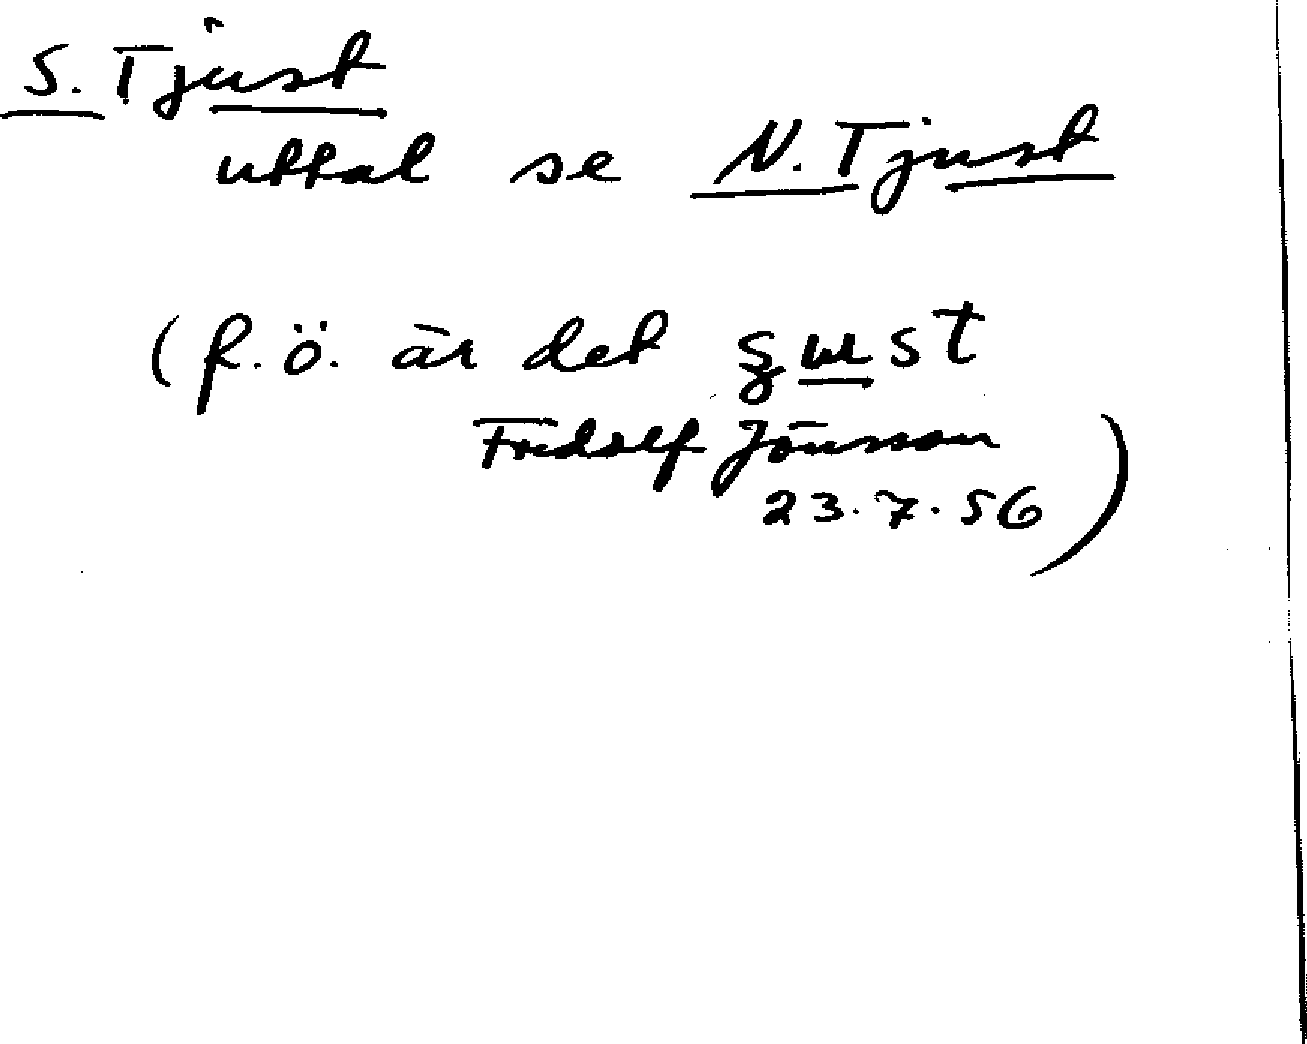 S. Tjust
uttal se N. Tjust
(f.ö. är det ꞩust
Fridolf Jönsson
23.7.56)